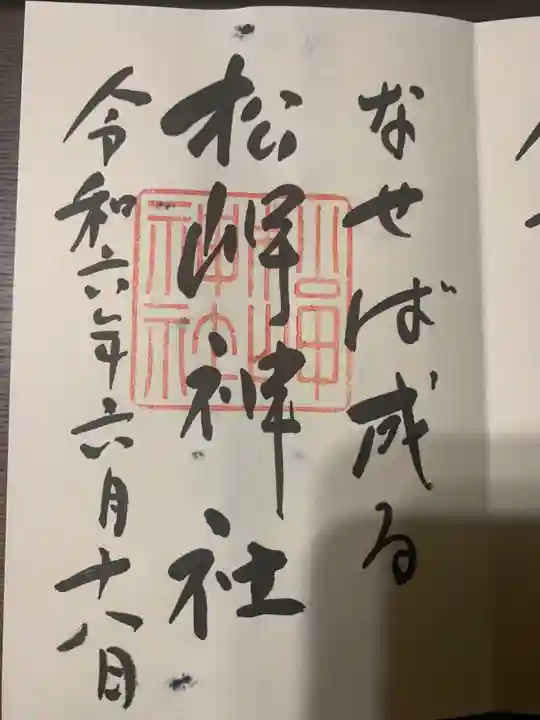 なせば成る
松岬神社
令和六年六月十八日
神社